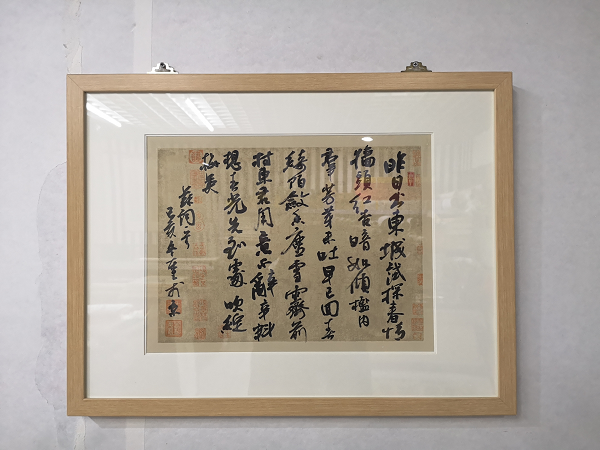 昨日出東城試探春情
牆頭红杏暗如傾檻內
羣芳芽未吐早已回春
綺陌斂香塵雪霽前
村東君用意不辭辛料
想春光先到處吹綻
梅英
蘇詞
己亥冬